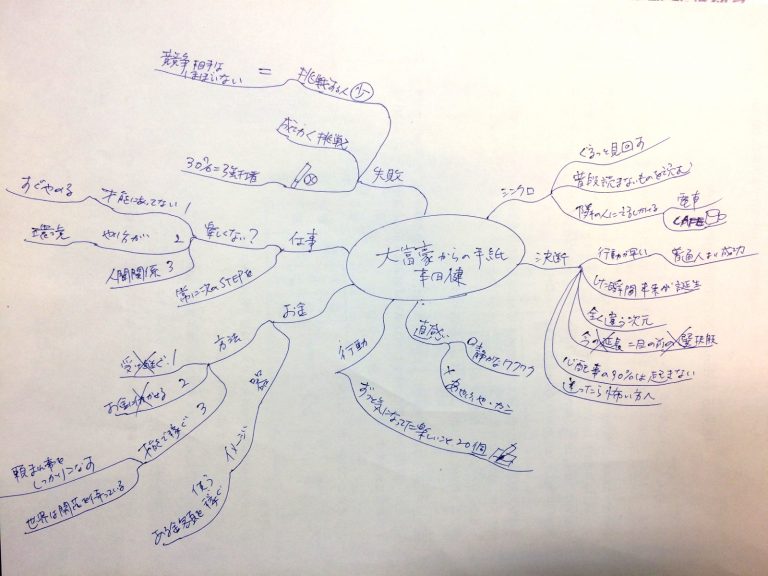 大富豪からの手紙
本田健
シンクロ
ぐるっと見回す
普段読まないものを読む
隣の人に
電車
CAFE
決断
行動が早い
普通人より
した瞬間未来が誕生
全く違う次元
今の延長＝目の前の
心配事の90%は起きない
迷ったら怖い方へ
直感
静かなワクワク
行動
ずっと気になってた楽しいこと20個
お金
方法
受け継ぐ 1
お金 2
才能で稼ぐ 3
頼まれ事を
しっかりこなす
世界は開花を待っている
器
イメージ
使う
ある金額を稼ぐ
仕事
楽しくない?
才能にあってない 1
すぐやめる
やり方が 2
環境
人間関係 3
常に次のSTEPを
失敗
挑戦する人 少
=
競争相手は
ほぼいない
成功く挑戦
30%=3強打者